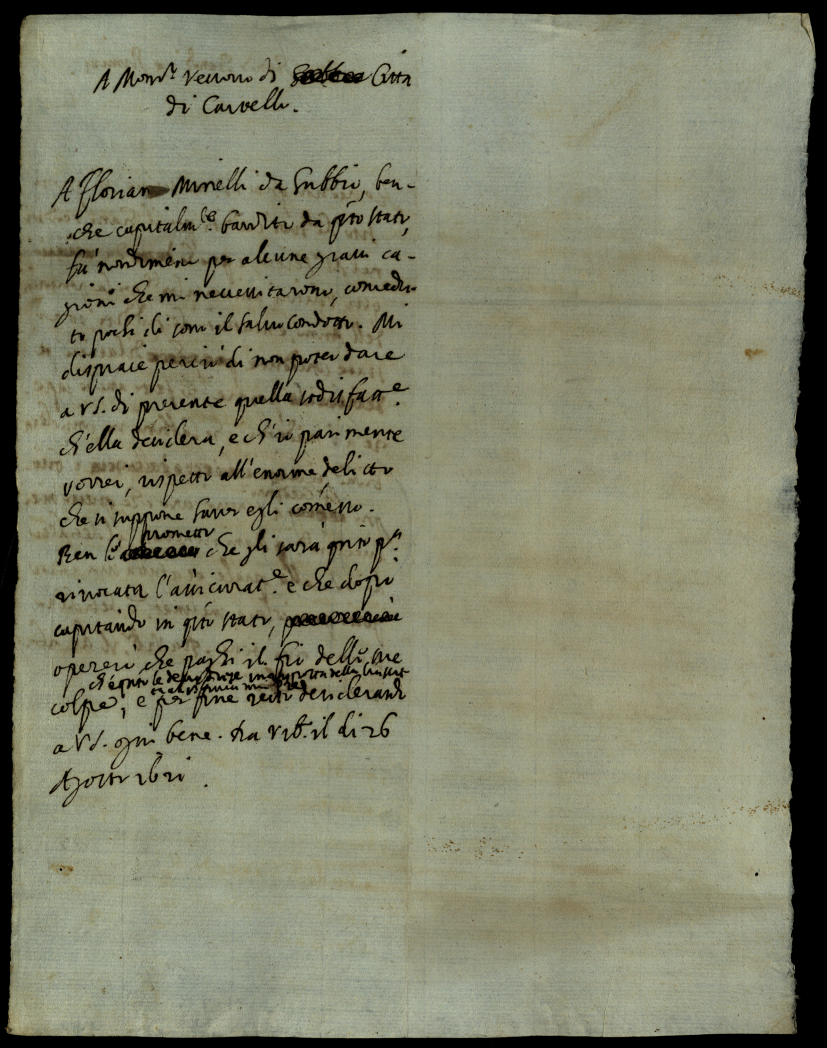 A Mons.r Vescovo di Città
di Castello.
A Florian Minelli da Gubbio, ben-
che capitalm.te bandito da q̃to stato,
fu nondimeno per alcune gravi ca-
gioni che mi necessitarono, concedu-
to pochi dì sono il salvocondotto. Mi
dispiace perciò di non poter dare
a VS. di presente quella sodisfatt.e
ch'ella desidera, e ch'io parimente
vorrei, rispetto all'enorme delitto
che si suppone haver egli comesso.
prometto
Ben che gli sarà q̃sto p.o
rivocata l'assicurat.e e che dopo
capitando in q̃to stato,
opererò che paghi il fio delle sue
ch'è q̃nto le
colpe, e per fine resto desiderando
a VS. ogni bene. Da Urb.o il dì 26
Agosto 1621.